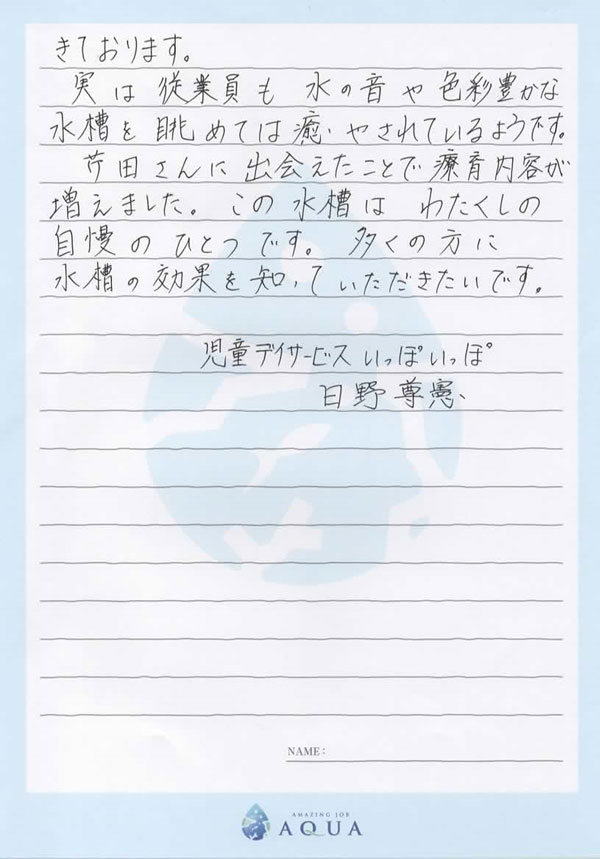 きております。
実は従業員も水の音や色彩豊かな
水槽を眺めては癒やされているようです。
芦田さんに出会えたことで療育内容が
増えました。この水槽はわたくしの
自慢のひとつです。多くの方に
水槽の効果を知っていただきたいです。
児童デイサービスいっぽいっぽ
日野尊憲
NAME:
AMAZING JOB
AQUA